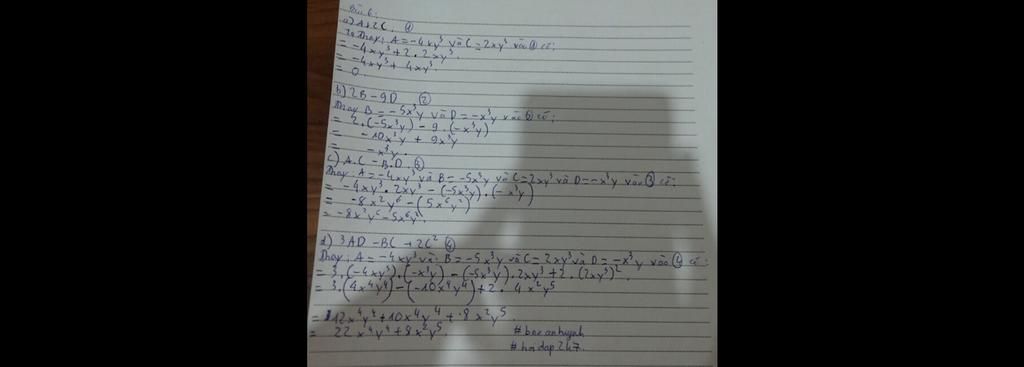 Bài 6:
a) A+2C. ①
Ta thay: A = -4xy³ và C = 2xy³ vào ① có:
= -4xy³ + 2.2xy³
= -4xy³ + 4xy³.
= 0.
b) 2B - 9D ②
Thay B = -5x³y và D = -x³y vào ② có:
= 2.(-5x³y) - 9.(-x³y)
= -10x³y + 9x³y
= -x³y.
c) A.C - B.D. ③
Thay: A = -4xy³ và B = -5x³y và C = 2xy³ và D = -x³y vào ③ có:
= -4xy³. 2xy³ - (-5x³y).(-x³y)
= -8x²y⁶ - (5x⁶y²)
= -8x²y⁶ - 5x⁶y².
d) 3AD - BC + 2C² ④
Thay: A = -4xy³ và B = -5x³y và C = 2xy³ và D = -x³y vào ④ có:
= 3.(-4xy³).(-x³y) - (-5x³y).2xy³ + 2.(2xy³)²
= 3.(4x⁴y⁴) - (-10x⁴y⁴) + 2. 4x²y⁵
= 12x⁴y⁴ + 10x⁴y⁴ + 8x²y⁵
= 22x⁴y⁴ + 8x²y⁵.
#baoanhuynh
#hoidap247.